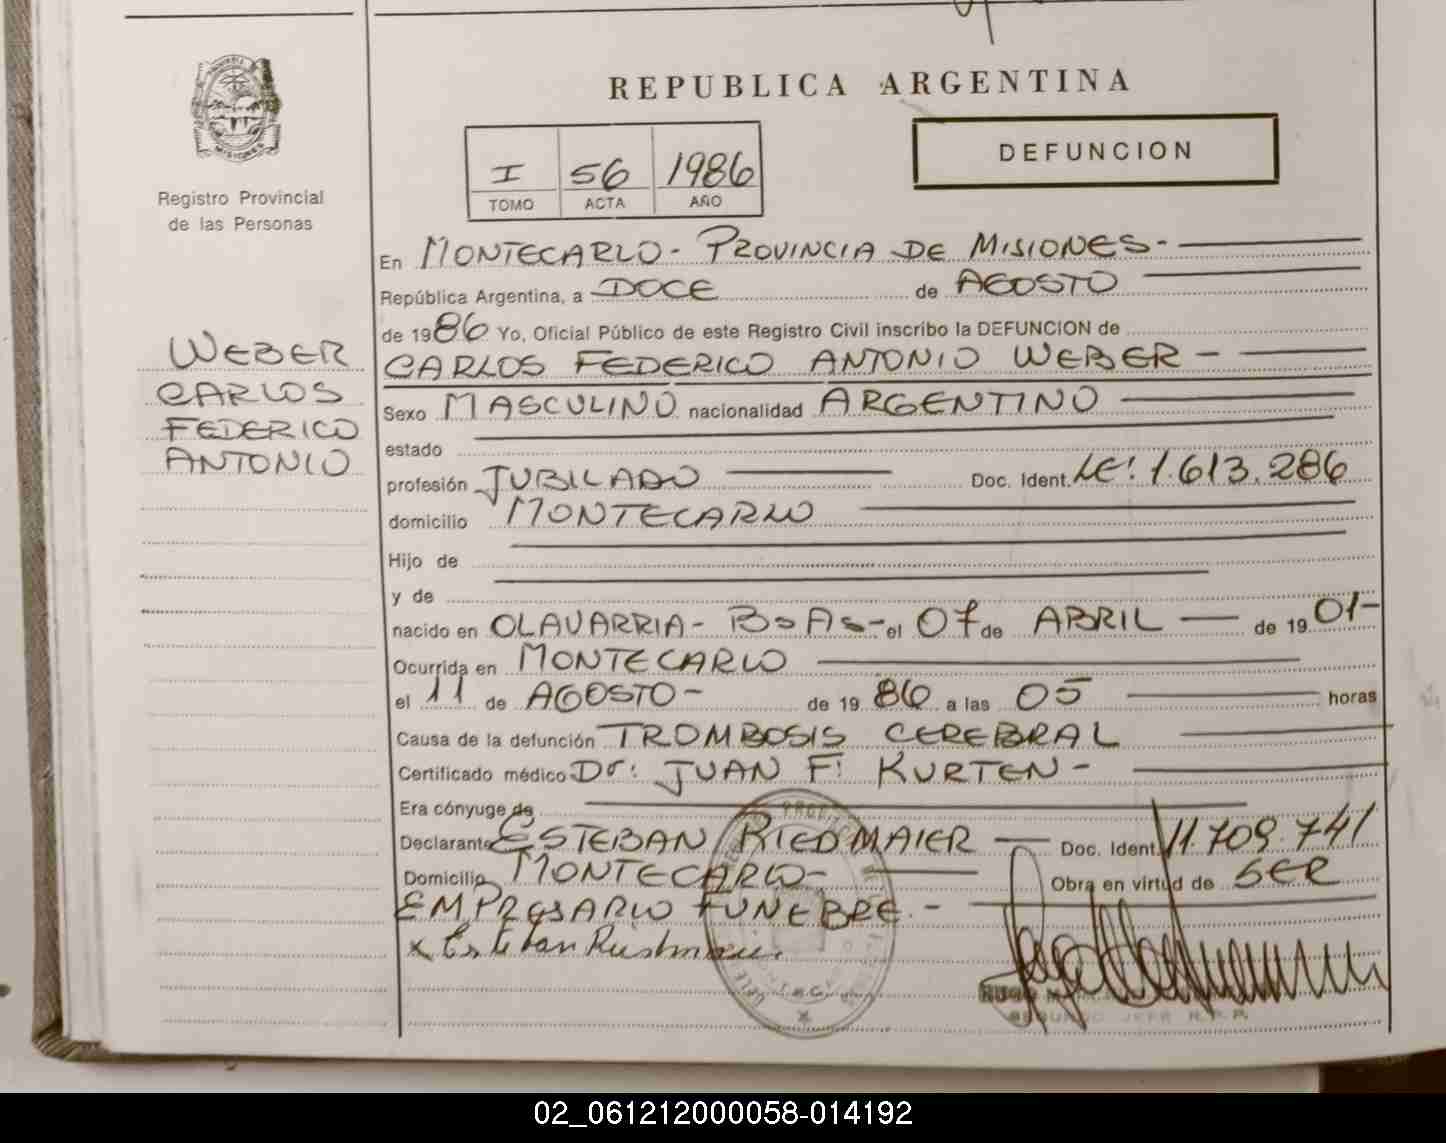 REPUBLICA ARGENTINA
PROVINCIA DE
MISIONES
Registro Provincial
de las Personas
I 56 1986
TOMO ACTA AÑO
DEFUNCION
WEBER
CARLOS
FEDERICO
ANTONIO
En MONTECARLO - PROVINCIA DE MISIONES -
República Argentina, a DOCE de AGOSTO
de 1986 Yo, Oficial Público de este Registro Civil inscribo la DEFUNCION de
CARLOS FEDERICO ANTONIO WEBER -
Sexo MASCULINO nacionalidad ARGENTINO
estado
profesión JUBILADO Doc. Ident. LE: 1.613.286
domicilio MONTECARLO
Hijo de
y de
nacido en OLAVARRIA - Bs As - el 07 de ABRIL de 19 01 -
Ocurrida en MONTECARLO
el 11 de AGOSTO - de 19 86 a las 05 horas
Causa de la defunción TROMBOSIS CEREBRAL
Certificado médico Dr: JUAN F: KURTEN -
Era cónyuge de
Declarante ESTEBAN RIEDMAIER Doc. Ident. 11.709.741
Domicilio MONTECARLO - Obra en virtud de SER
EMPRESARIO FUNEBRE. -
x Esteban
SEGUNDO JEFE R.P.P.
02_061212000058-014192